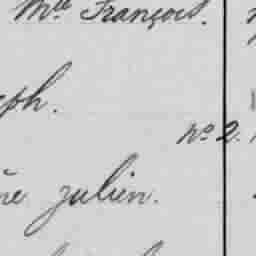 Mlle François.
eph.
No 2.
ne julien.